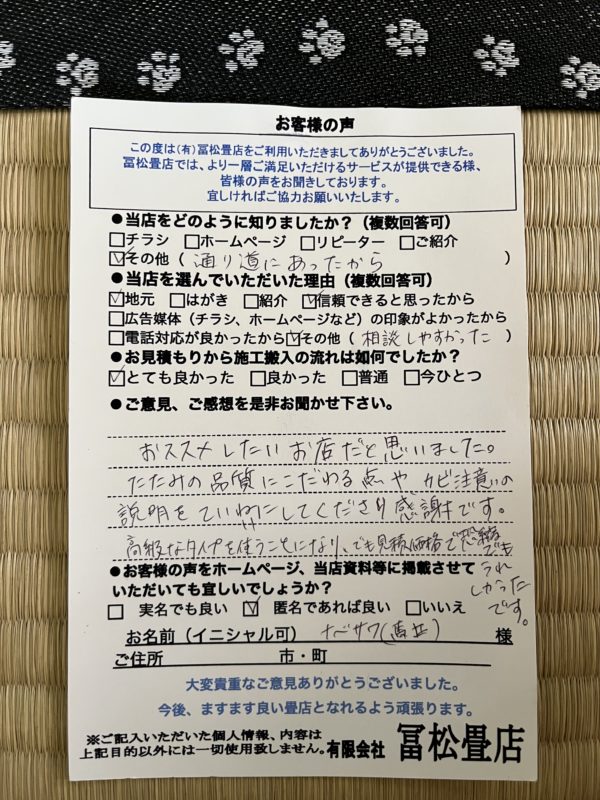 お客様の声
この度は(有)冨松畳店をご利用いただきましてありがとうございました。
冨松畳店では、より一層ご満足いただけるサービスが提供できる様、
皆様の声をお聞きしております。
宜しければご協力お願いいたします。
●当店をどのように知りましたか？（複数回答可）
□チラシ □ホームページ □リピーター □ご紹介
☑その他（通り道にあったから）
●当店を選んでいただいた理由（複数回答可）
☑地元 □はがき □紹介 ☑信頼できると思ったから
□広告媒体（チラシ、ホームページなど）の印象がよかったから
□電話対応が良かったから☑その他（相談しやすかった）
●お見積もりから施工搬入の流れは如何でしたか？
☑とても良かった □良かった □普通 □今ひとつ
●ご意見、ご感想を是非お聞かせ下さい。
おススメしたいお店だと思いました。
たたみの品質にこだわる点や カビ注意の
説明をていねいにしてくださり感謝です。
高級なタイプを使うことになり、でも見積価格で
でも
うれ
しかった
です。
●お客様の声をホームページ、当店資料等に掲載させて
いただいても宜しいでしょうか？
□ 実名でも良い ☑ 匿名であれば良い □いいえ
お名前（イニシャル可） ナベサワ 様
ご住所 市・町
大変貴重なご意見ありがとうございました。
今後、ますます良い畳店となれるよう頑張ります。
※ご記入いただいた個人情報、内容は
上記目的以外には一切使用致しません。有限会社 冨松畳店